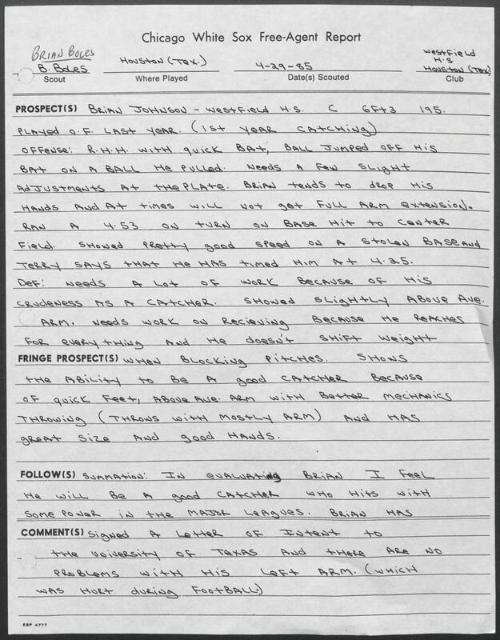 Chicago White Sox Free-Agent Report
BRIAN BOLES
B. Boles Houston (Tex.) 4-29-85 Westfield H.S. Houston (Tex)
Scout Where Played Date(s) Scouted Club
PROSPECT(S) BRIAN JOHNSON - Westfield H.S. C 6ft3 195.
PLAYED O.F LAST YEAR. (1ST YEAR CATCHING)
OFFENSE: R.H.H. WITH QUICK BAT, BALL JUMPED OFF HIS
BAT ON A BALL HE PULLED. NEEDS A FEW SLIGHT
ADJUSTMENTS AT THE PLATE. BRIAN TENDS TO DROP HIS
HANDS AND AT TIMES WILL NOT GET FULL ARM EXTENSION.
RAN A 4.53 ON TURN ON BASE HIT TO CENTER
FIELD. SHOWED PRETTY GOOD SPEED ON A STOLEN BASE AND
TERRY SAYS THAT HE HAS TIMED HIM AT 4.35.
DEF: NEEDS A LOT OF WORK BECAUSE OF HIS
CRUDENESS AS A CATCHER. SHOWED SLIGHTLY ABOVE AVE.
ARM. NEEDS WORK ON RECIEVING BECAUSE HE REACHES
FOR EVERYTHING AND HE DOESN'T SHIFT WEIGHT
FRINGE PROSPECT(S) WHEN BLOCKING PITCHES. SHOWS
THE ABILITY TO BE A GOOD CATCHER BECAUSE
OF QUICK FEET, ABOVE AVE ARM WITH BETTER MECHANICS
THROWING (THROWS WITH MOSTLY ARM) AND HAS
GREAT SIZE AND GOOD HANDS.
FOLLOW(S) SUMMATION: IN EVALUATING BRIAN I FEEL
HE WILL BE A GOOD CATCHER WHO HITS WITH
SOME POWER IN THE MAJOR LEAGUES. BRIAN HAS
COMMENT(S) SIGNED A LETTER OF INTENT TO
THE UNIVERSITY OF TEXAS AND THERE ARE NO
PROBLEMS WITH HIS LEFT ARM. (WHICH
WAS HURT DURING FOOTBALL)